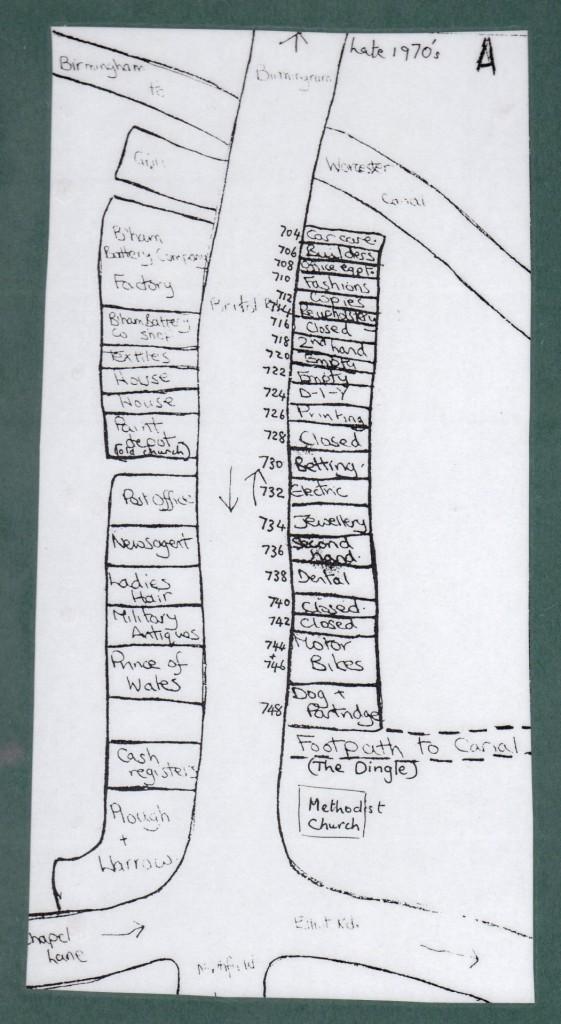 Late 1970's
A
Birmingham
to
Birmingham
Worcester
Canal
B'ham
Battery Company
Factory
B'ham Battery
Co shop
Textiles
House
House
Paint
depot
(old church)
Post Office
Newsagent
Ladies
Hair
Military
Antiques
Prince of
Wales
Cash
registers
Plough
+
Harrow
704 Car care.
706 Builders
708 Office eqpt.
710 Fashions
712 Copies
714
716 Closed
718 2nd hand
720 Empty
722 Empty
724 D-I-Y
726 Printing
728 Closed
730 Betting.
732 Electric
734 Jewellery
736 Second
Hand
738 Dental
740 Closed.
742 Closed
744 Motor
+
746 Bikes
748 Dog +
Partridge
Footpath to Canal
(The Dingle)
Methodist
Church
Chapel
Lane